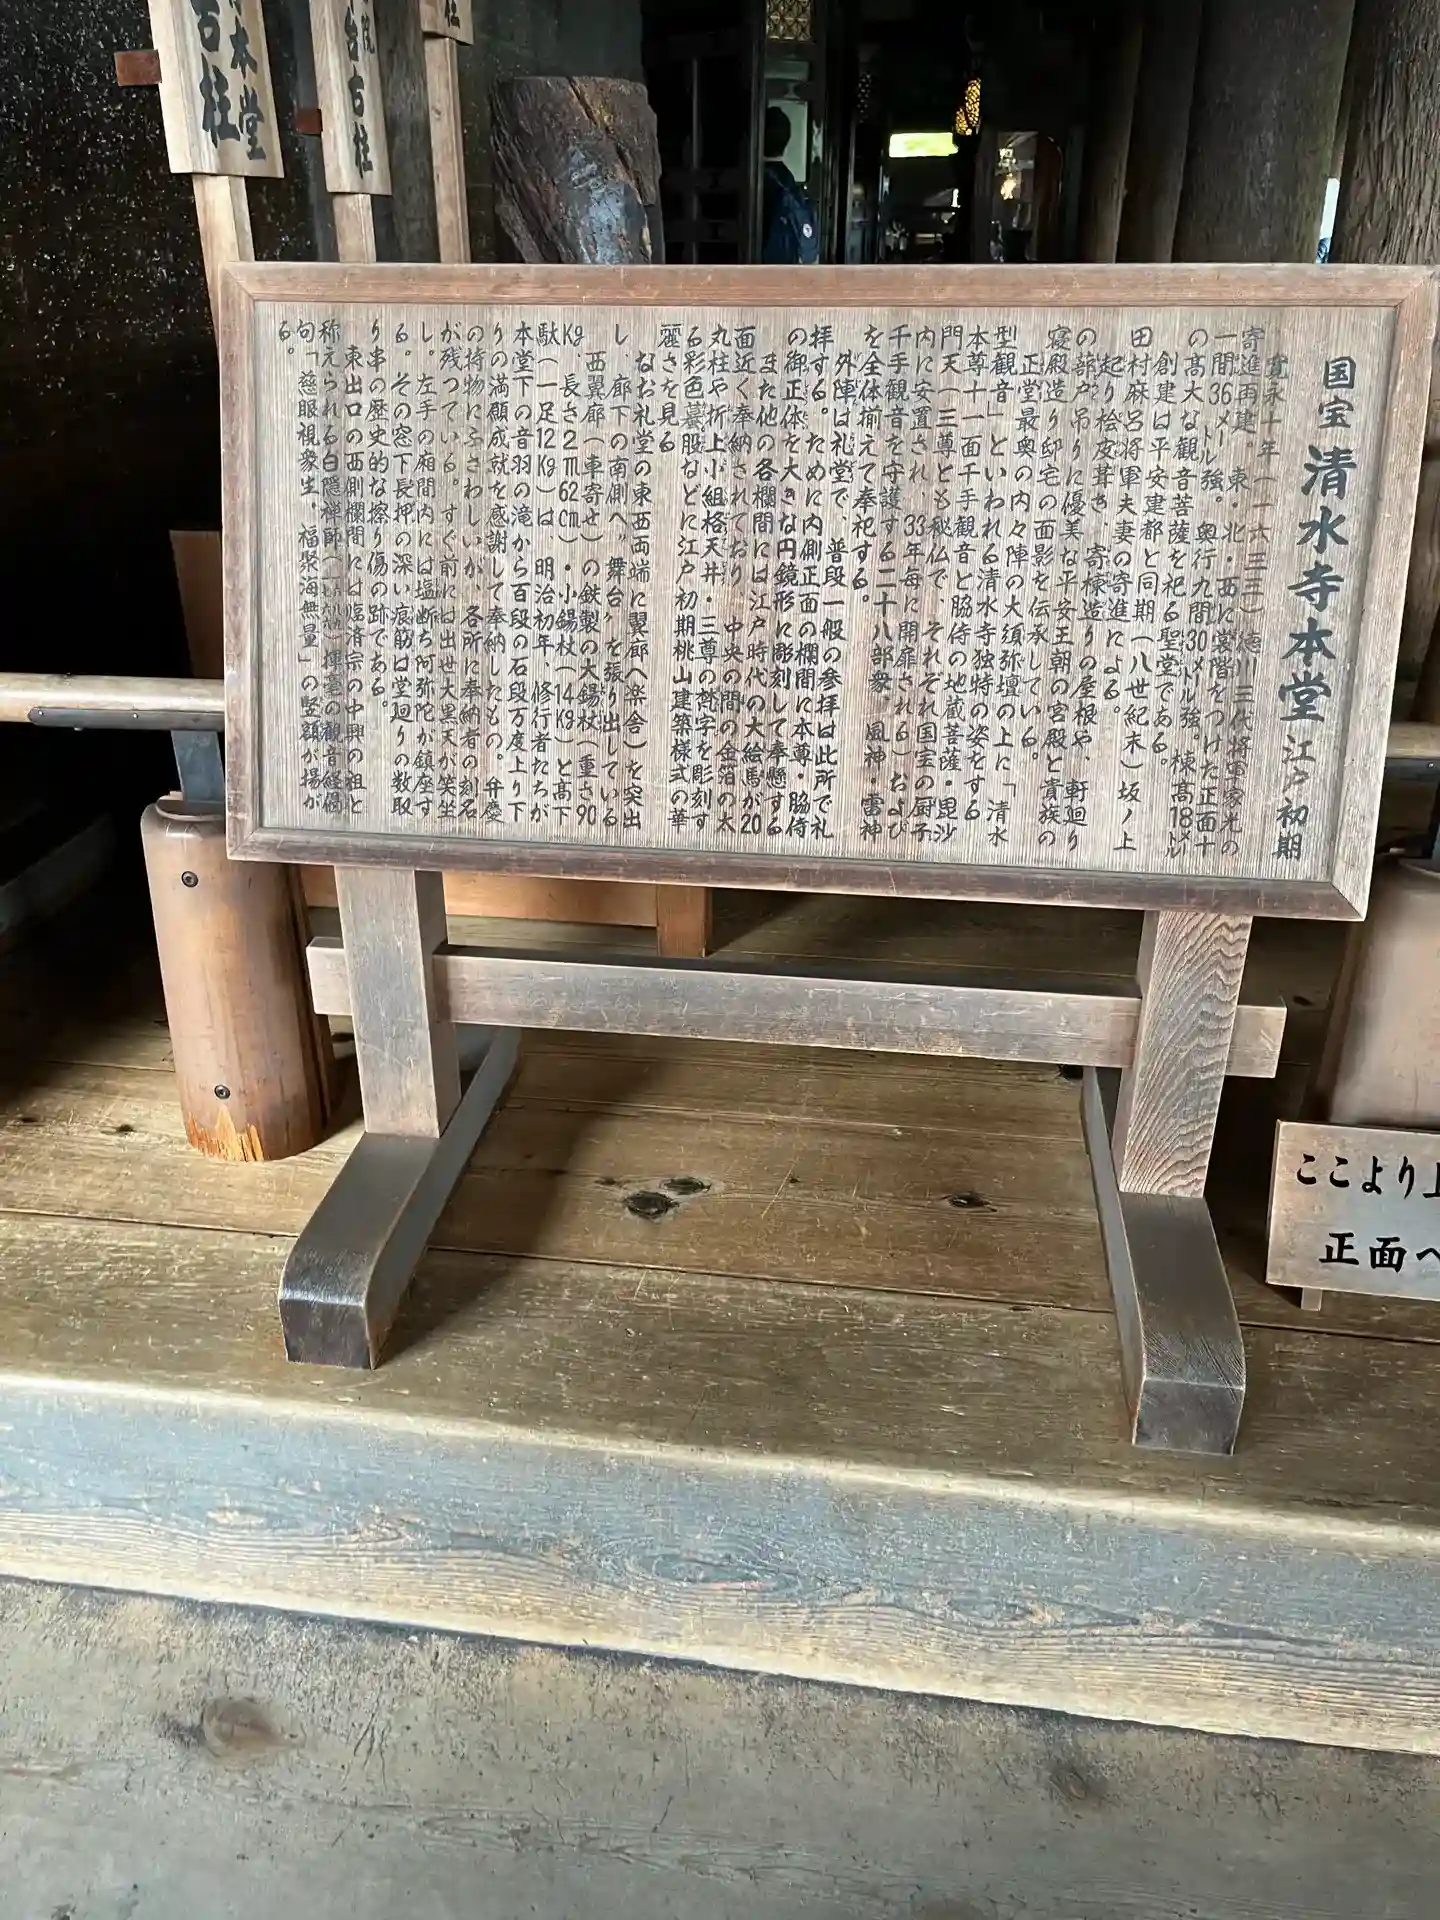 本堂
古柱
舞台古柱
柱
国宝 清水寺本堂 江戸初期
寛永十年(一六三三)徳川三代将軍家光の
寄進再建。東・北・西に裳階をつけた正面十
一間36㍍強。奥行九間30㍍強。棟高18㍍
の高大な観音菩薩を祀る聖堂である。
創建は平安建都と同期(八世紀末)坂ノ上
田村麻呂将軍夫妻の寄進による。
起り桧皮葺き、寄棟造りの屋根や、軒廻り
の蔀戸吊りに優美な平安王朝の宮殿と貴族の
寝殿造り邸宅の面影を伝承している。
正堂最奥の内々陣の大須弥壇の上に「清水
型観音」といわれる清水寺独特の姿をする
本尊十一面千手観音と脇侍の地蔵菩薩・毘沙
門天(三尊とも秘仏で、それぞれ国宝の厨子
内に安置され、33年毎に開扉される)および
千手観音を守護する二十八部衆、風神・雷神
を全体揃えて奉祀する。
外陣は礼堂で、普段一般の参拝は此所で礼
拝する。ために内側正面の欄間に本尊・脇侍
の御正体を大きな円鏡形に彫刻して奉懸する
また他の各欄間には江戸時代の大絵馬が20
面近く奉納されており、中央の間の金箔の太
丸柱や折上小組格天井・三尊の梵字を彫刻す
る彩色蟇股などに江戸初期桃山建築様式の華
麗さを見る
なお礼堂の東西両端に翼廊へ楽舎)を突出
し、廊下の南側へ〝舞台〟を張り出している
西翼廊(車寄せ)の鉄製の大錫杖(重さ90
Kg、長さ2m62cm)・小錫杖(14Kg)と高下
駄(一足12Kg)は、明治初年、修行者たちが
本堂下の音羽の滝から百段の石段万度上り下
りの満願成就を感謝して奉納したもの。弁慶
の持物にふさわしいが、各所に奉納者の刻名
が残っている。すぐ前には出世大黒天が笑坐
し。左手の廂間内には塩断ち阿弥陀が鎮座す
る。その窓下長押の深い痕筋は堂廻りの数取
り串の歴史的な擦り傷の跡である。
東出口の西側欄間には臨済宗の中興の祖と
称えられる白隠禅師揮毫の観音経偈
句「慈眼視衆生、福聚海無量」の竪額が揚が
る。
ここより
正面へ